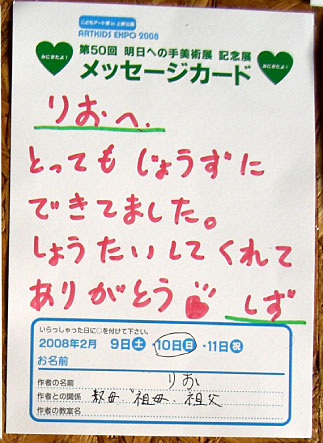 こどもアート展 in 上野公園
ARTKIDS EXPO 2008
第50回 明日への手美術展 記念展
メッセージカード
みにきたよ！
みにきたよ！
りおへ.
とっても じょうずに
できてました。
しょうたいしてくれて
ありがとう
しず
いらっしゃった日に○を付けて下さい。
2008年2月 9日土・10日日・11日祝
お名前
作者の名前 りお
作者との関係 教母、祖母、祖父
作者の教室名